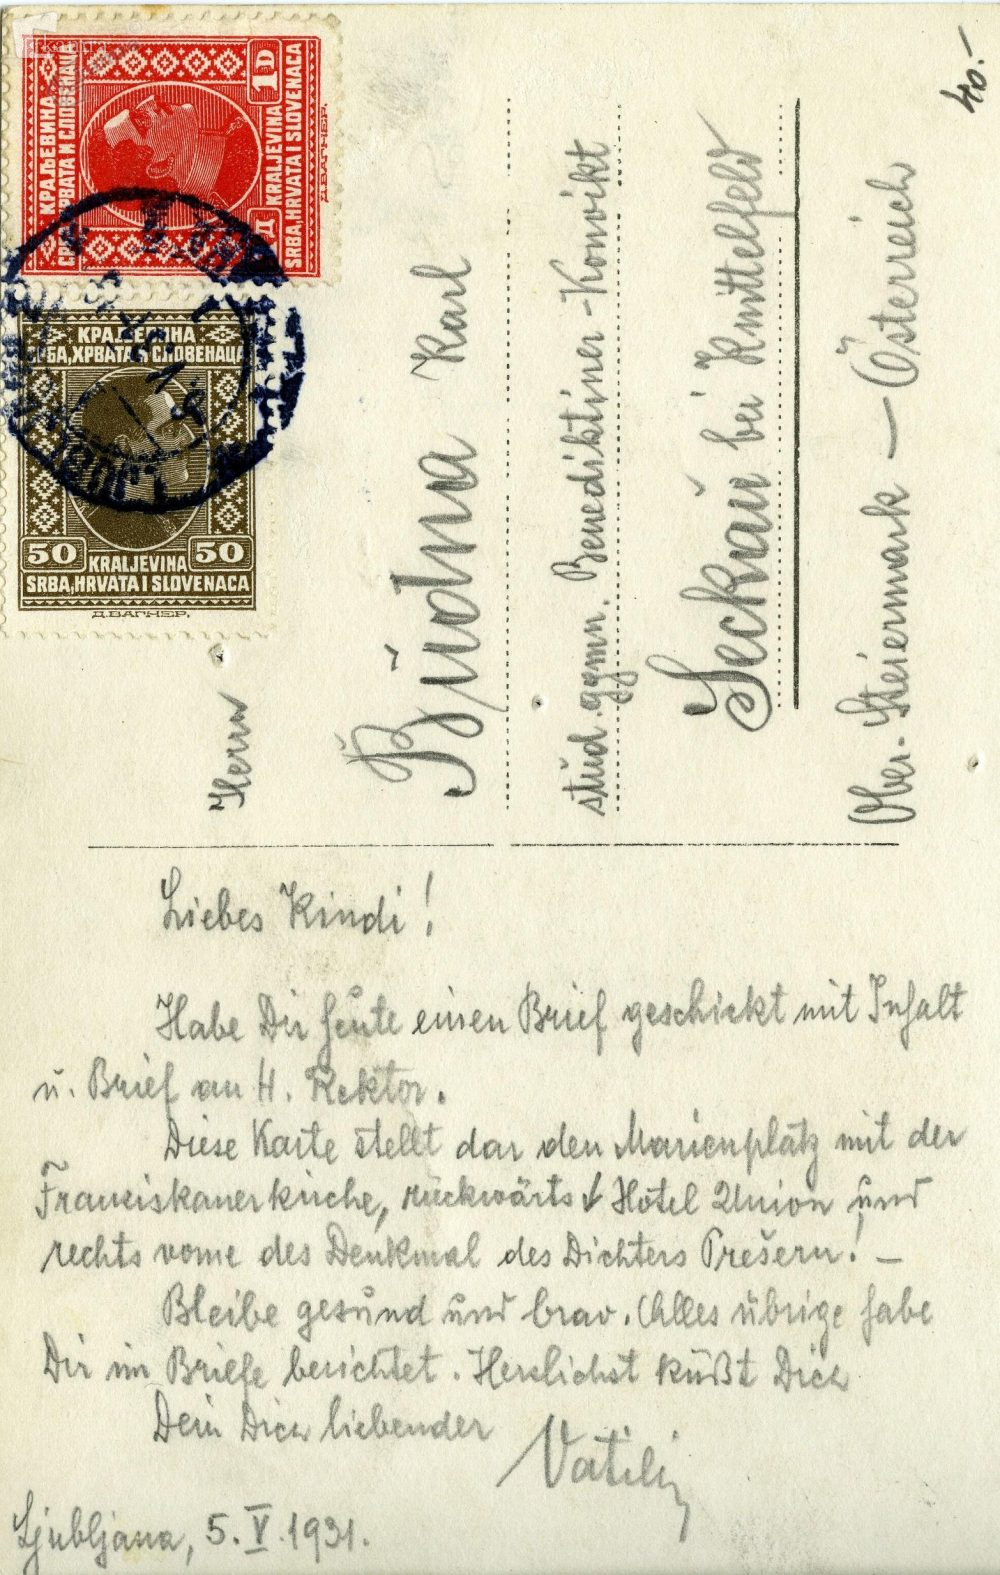 КРАЉЕВИНА
СРБА, ХРВАТА И СЛОВЕНАЦА
1D
KRALJEVINA
SRBA, HRVATA I SLOVENACA
Д.ВАГНЕР.
КРАЉЕВИНА
СРБА, ХРВАТА И СЛОВЕНАЦА
50 50
KRALJEVINA
SRBA, HRVATA I SLOVENACA
Д.ВАГНЕР.
40.-
Herrn
Budna Karl
stud. gymn. Benediktiner-Konvikt
Seckau bei Knittelfeld
Ober-Steiermark — Österreich
Liebes Kindi!
Habe Dir heute einen Brief geschickt mit Inhalt
u. Brief an H. Rektor.
Diese Karte stellt dar den Marienplatz mit der
Franziskanerkirche, rückwärts Hotel Union und
rechts vorne des Denkmal des Dichters Prešern! –
Bleibe gesund und brav. Alles übrige habe
Dir im Briefe berichtet. Herzlichst küßt Dich
Dein Dich liebender
Vatili
Ljubljana, 5. V. 1931.